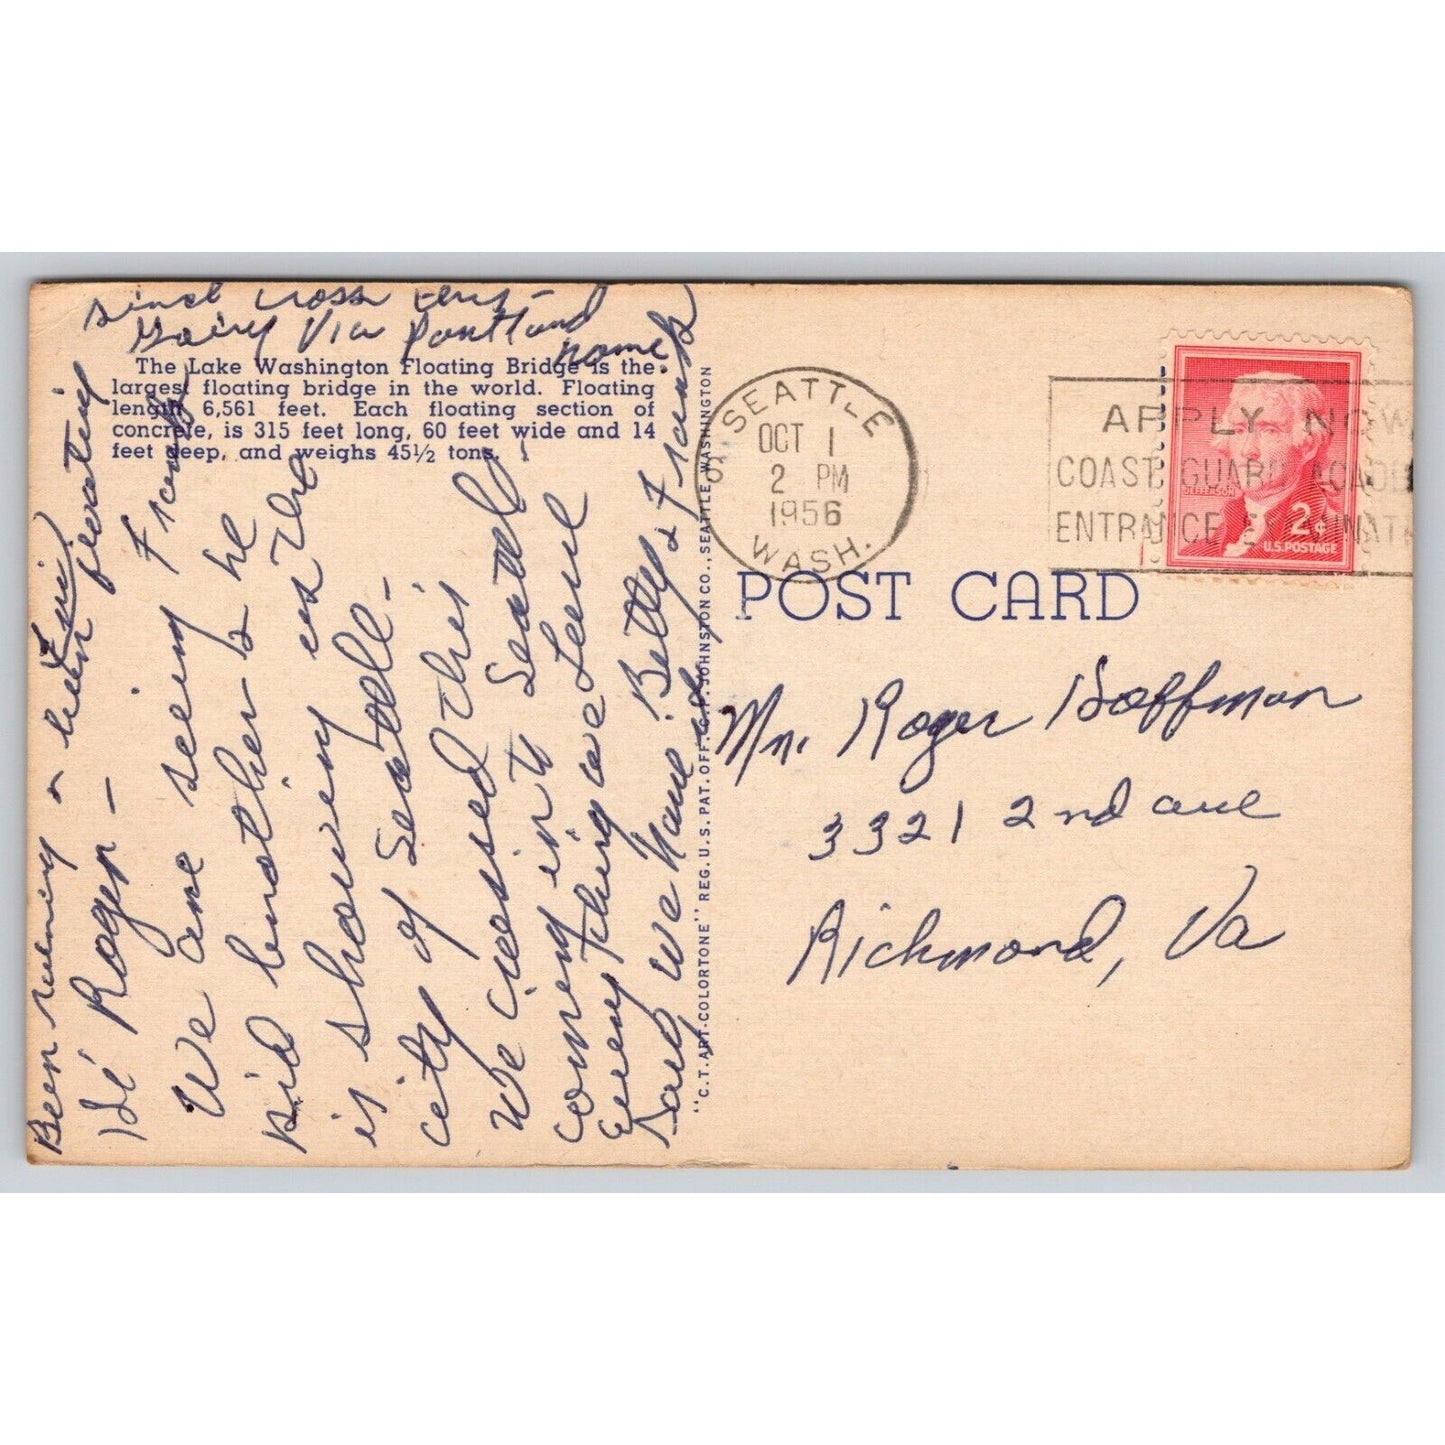 since cross
Going Via Portland
home.
The Lake Washington Floating Bridge is the
largest floating bridge in the world. Floating
length 6,561 feet. Each floating section of
concrete, is 315 feet long, 60 feet wide and 14
feet deep, and weighs 45½ tons.
Hi Roger -
We are seeing Frank's
kid brother & he
is showing us the
city of Seattle -
We crossed this
coming into Seattle -
Everything we Love
said we have. Betty & Frank
Been raining & been floating
"C.T. ART-COLORTONE" REG. U.S. PAT. OFF. C.P. JOHNSTON CO., SEATTLE, WASHINGTON
SEATTLE
OCT 1
2 PM
1956
WASH.
APPLY NOW
COAST GUARD ACADE
ENTRANCE EXAMINATI
JEFFERSON
2¢
U.S. POSTAGE
POST CARD
Mr. Roger Hoffman
3321 2nd ave
Richmond, Va